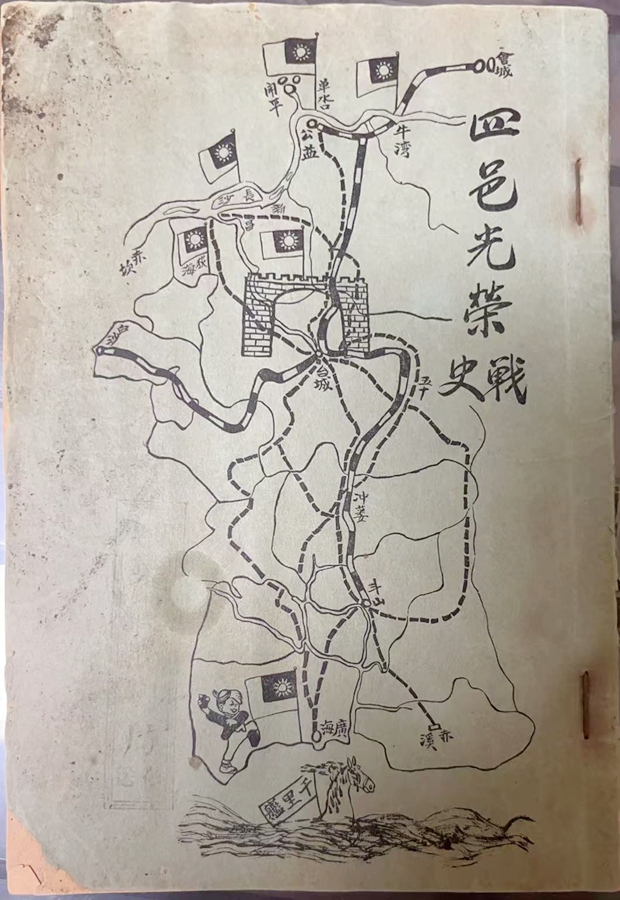 四邑光榮
戰史
會城
單水口
開平
公益
牛湾
長沙
新昌
荻海
赤坎
白沙
台城
五十
冲蒌
斗山
廣海
赤溪
千里